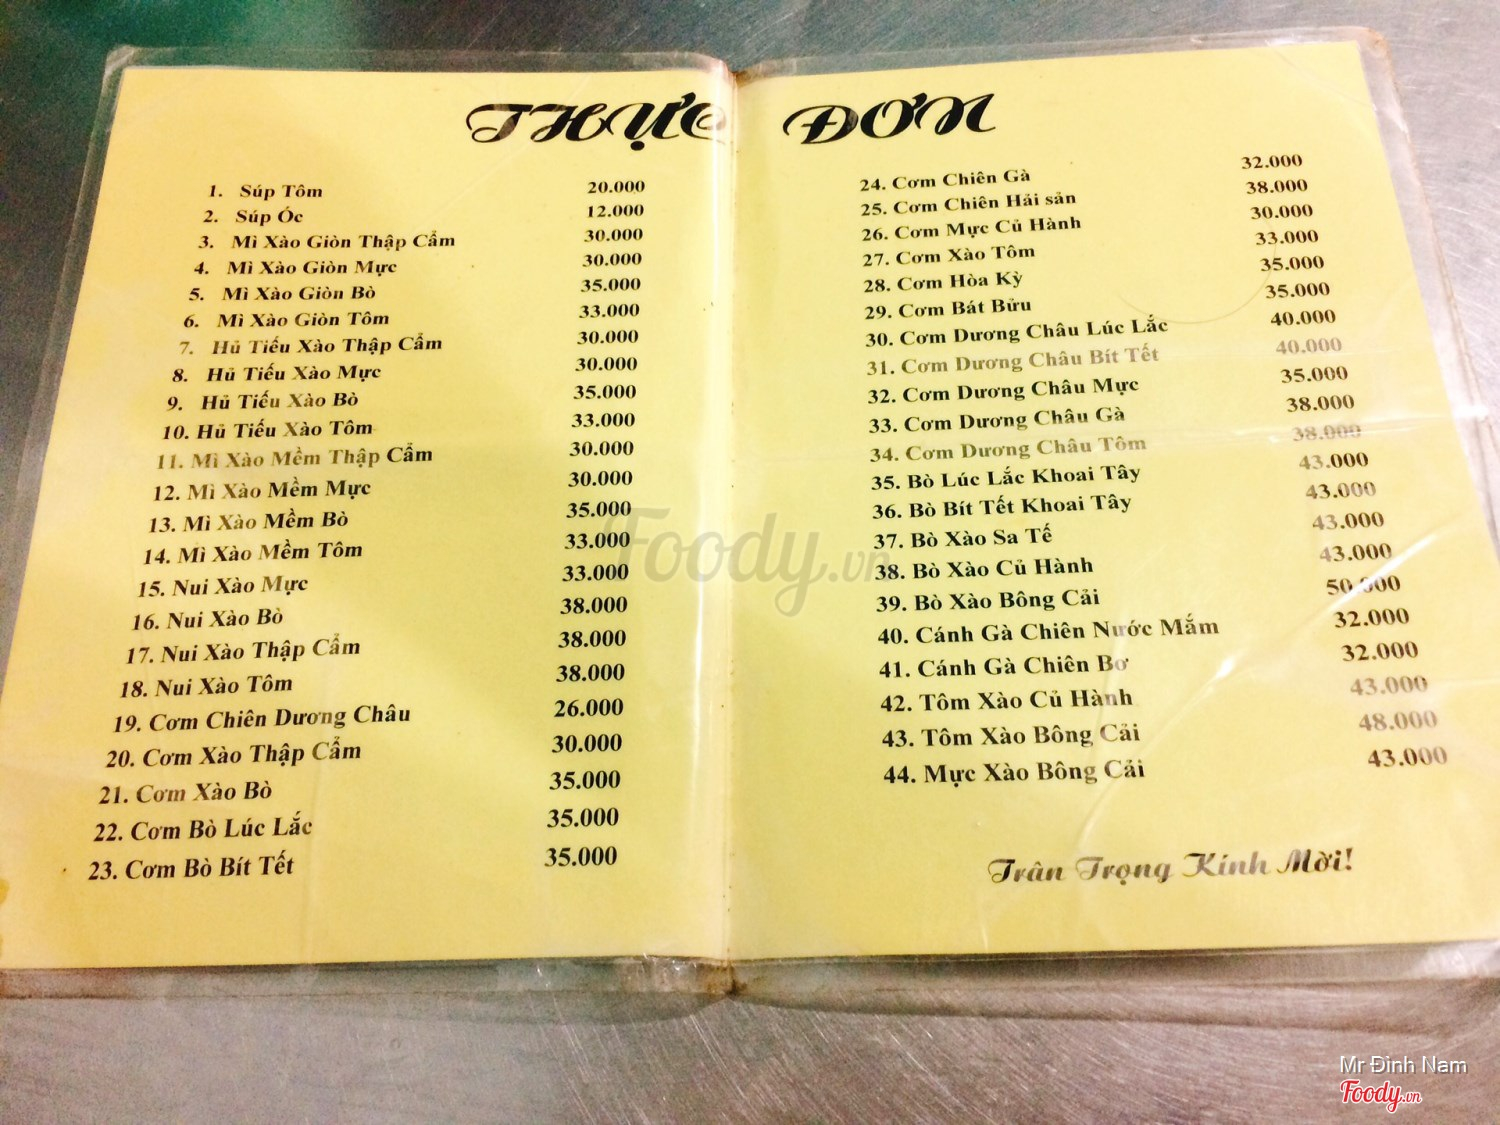 THỰC ĐƠN
1. Súp Tôm 20.000
2. Súp Óc 12.000
3. Mì Xào Giòn Thập Cẩm 30.000
4. Mì Xào Giòn Mực 30.000
5. Mì Xào Giòn Bò 35.000
6. Mì Xào Giòn Tôm 33.000
7. Hủ Tiếu Xào Thập Cẩm 30.000
8. Hủ Tiếu Xào Mực 30.000
9. Hủ Tiếu Xào Bò 35.000
10. Hủ Tiếu Xào Tôm 33.000
11. Mì Xào Mềm Thập Cẩm 30.000
12. Mì Xào Mềm Mực 30.000
13. Mì Xào Mềm Bò 35.000
14. Mì Xào Mềm Tôm 33.000
15. Nui Xào Mực 33.000
16. Nui Xào Bò 38.000
17. Nui Xào Thập Cẩm 38.000
18. Nui Xào Tôm 38.000
19. Cơm Chiên Dương Châu 26.000
20. Cơm Xào Thập Cẩm 30.000
21. Cơm Xào Bò 35.000
22. Cơm Bò Lúc Lắc 35.000
23. Cơm Bò Bít Tết 35.000
24. Cơm Chiên Gà 32.000
25. Cơm Chiên Hải sản 38.000
26. Cơm Mực Củ Hành 30.000
27. Cơm Xào Tôm 33.000
28. Cơm Hòa Kỳ 35.000
29. Cơm Bát Bửu 35.000
30. Cơm Dương Châu Lúc Lắc 40.000
31. Cơm Dương Châu Bít Tết 40.000
32. Cơm Dương Châu Mực 35.000
33. Cơm Dương Châu Gà 38.000
34. Cơm Dương Châu Tôm 38.000
35. Bò Lúc Lắc Khoai Tây 43.000
36. Bò Bít Tết Khoai Tây 43.000
37. Bò Xào Sa Tế 43.000
38. Bò Xào Củ Hành 43.000
39. Bò Xào Bông Cải 50.000
40. Cánh Gà Chiên Nước Mắm 32.000
41. Cánh Gà Chiên Bơ 32.000
42. Tôm Xào Củ Hành 43.000
43. Tôm Xào Bông Cải 48.000
44. Mực Xào Bông Cải 43.000
Trân Trọng Kính Mời!
Foody.vn
Mr Đình Nam
Foody.vn